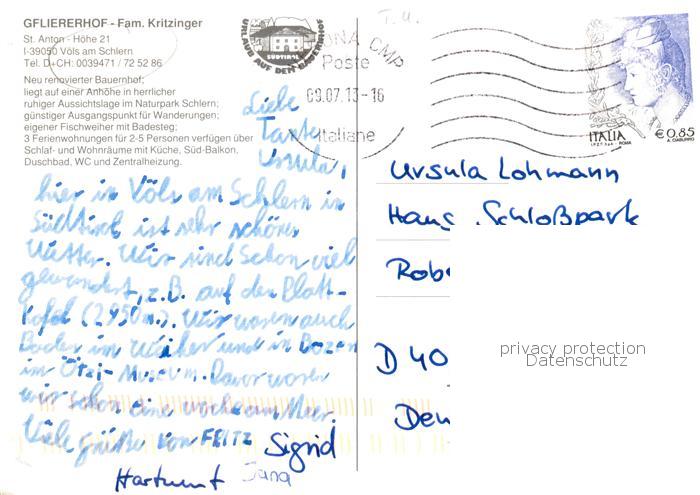 GFLIERERHOF - Fam. Kritzinger
St. Anton - Höhe 21
I-39050 Völs am Schlern
Tel. D+CH: 0039471 / 72 52 86
Neu renovierter Bauernhof;
liegt auf einer Anhöhe in herrlicher
ruhiger Aussichtslage im Naturpark Schlern;
günstiger Ausgangspunkt für Wanderungen;
eigener Fischweiher mit Badesteg;
3 Ferienwohnungen für 2-5 Personen verfügen über
Schlaf- und Wohnräume mit Küche, Süd-Balkon,
Duschbad, WC und Zentralheizung.
URLAUB AUF DEM BAUERNHOF
SÜDTIROL
T.U.
CMP
Poste
09.07.13-16
Italiane
ITALIA
€ 0,85
I.P.Z.S. S.p.A. - ROMA
Liebe
Tante
Ursula,
hier in Völs am Schlern in
Südtirol ist sehr schönes
Wetter. Wir sind schon viel
gewandert, z.B. auf den Platt-
kofel (2950m.). Wir waren auch
Baden im Weiher und in Bozen
im Ötzi-Museum. Davor waren
wir schon eine woche am Meer.
Viele grüße von FEITZ Sigrid
Hartmut Jana
Ursula Lohmann
Haus Schloßpark
Robe
D 40
Deu
privacy protection
Datenschutz